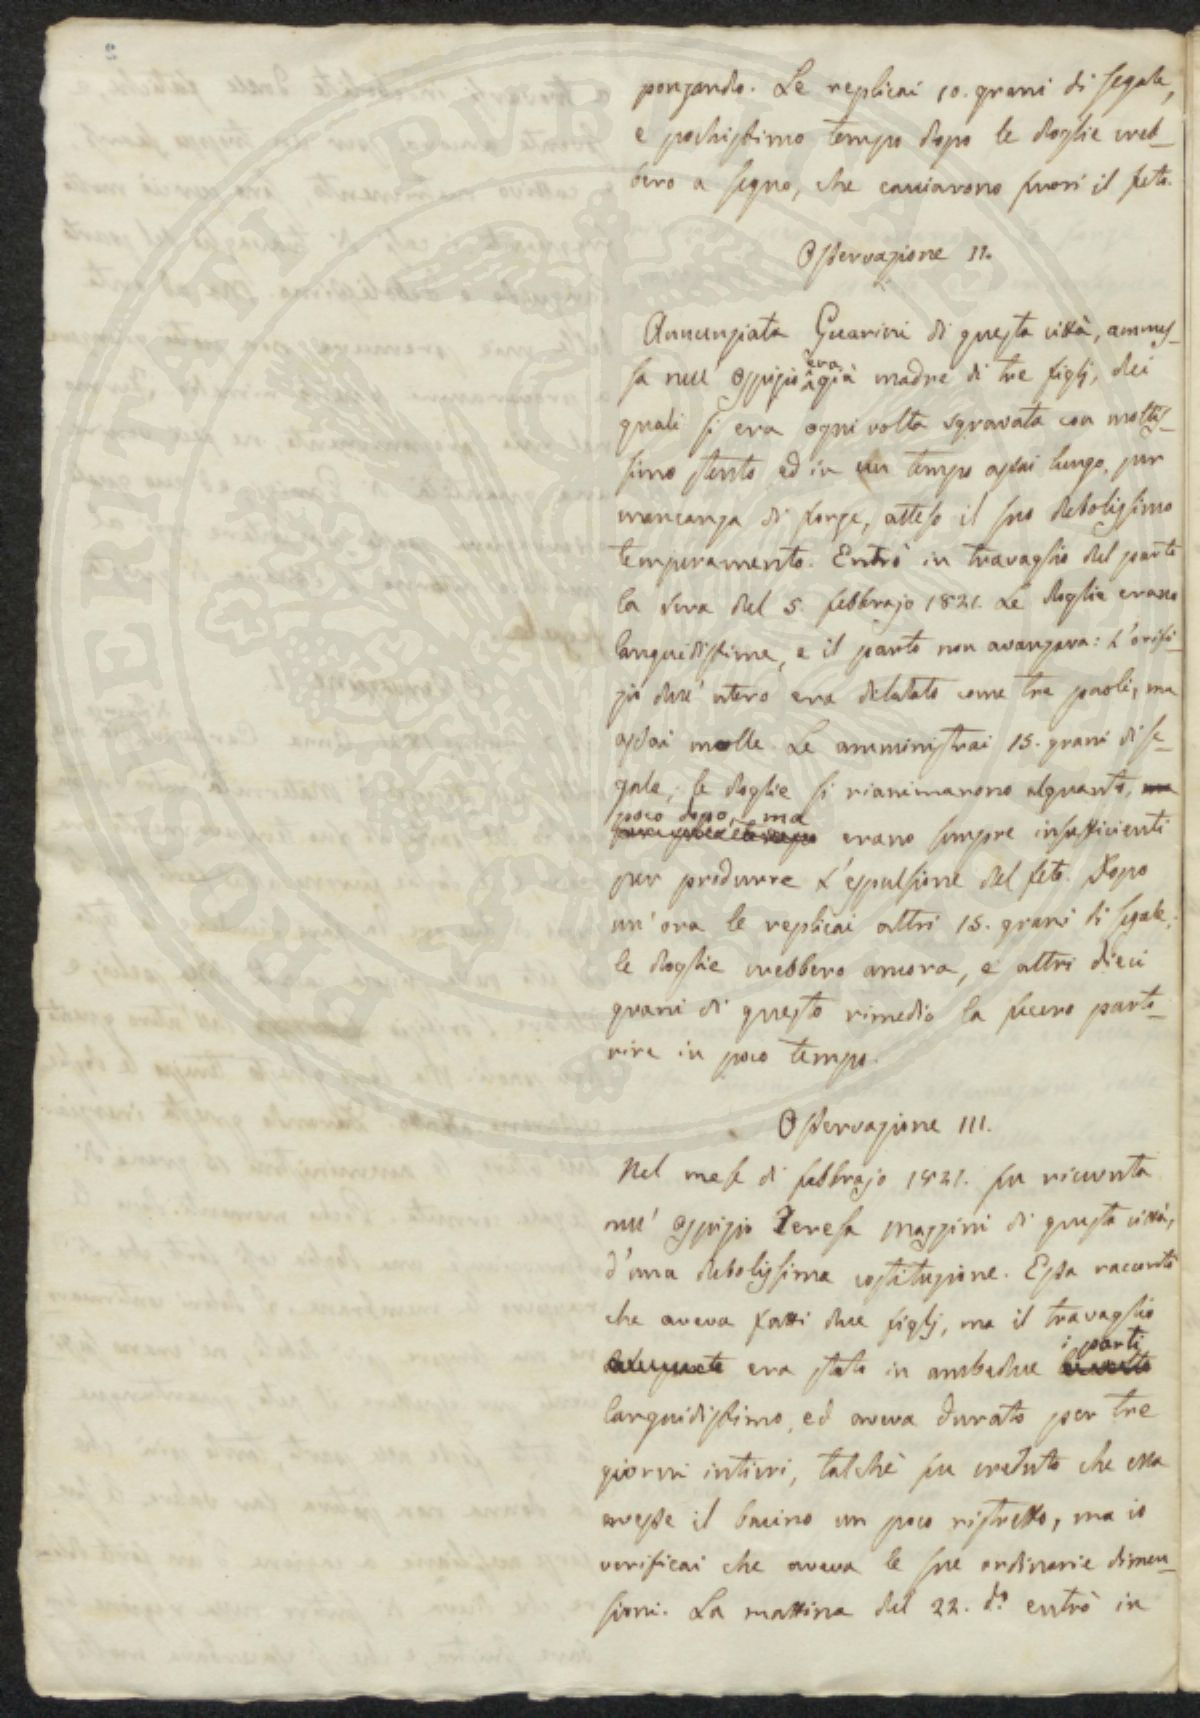 ponzando. Le replicai 10. grani di segale,
e pochissimo tempo dopo le doglie creb-
bero a segno, che cacciarono fuori il feto.
Osservazione II.
Annunziata Guarini di questa città, ammes-
sa nell' Ospizio era già madre di tre figlj, dei
quali si era ogni volta sgravata con moltis-
simo stento ed in un tempo assai lungo, per
mancanza di forze, atteso il suo debolissimo
temperamento. Entrò in travaglio del parto
la sera del 5. febbrajo 1821. Le doglie erano
languidissime, e il parto non avanzava: L'orifi-
zio dell' utero era dilatato come tre paoli, ma
assai molle. Le amministrai 15. grani di se-
gale; le doglie si rianimarono alquanto, ma
poco dopo, ma
erano sempre insufficienti
per produrre l'espulsione del feto. Dopo
un' ora le replicai altri 15. grani di segale;
le doglie crebbero ancora, e altri dieci
grani di questo rimedio la fecero parto-
rire in poco tempo.
Osservazione III.
Nel mese di febbrajo 1821. fu ricevuta
nell' Ospizio Teresa Mazzini di questa città,
d'una debolissima costituzione. Essa raccontò
che aveva fatti due figlj, ma il travaglio
era stato in ambedue i parti
languidissimo, ed aveva durato per tre
giorni intieri, talchè fu creduto che essa
avesse il bacino un poco ristretto, ma io
verificai che aveva le sue ordinarie dimen-
sioni. La mattina del 22. d.º entrò in